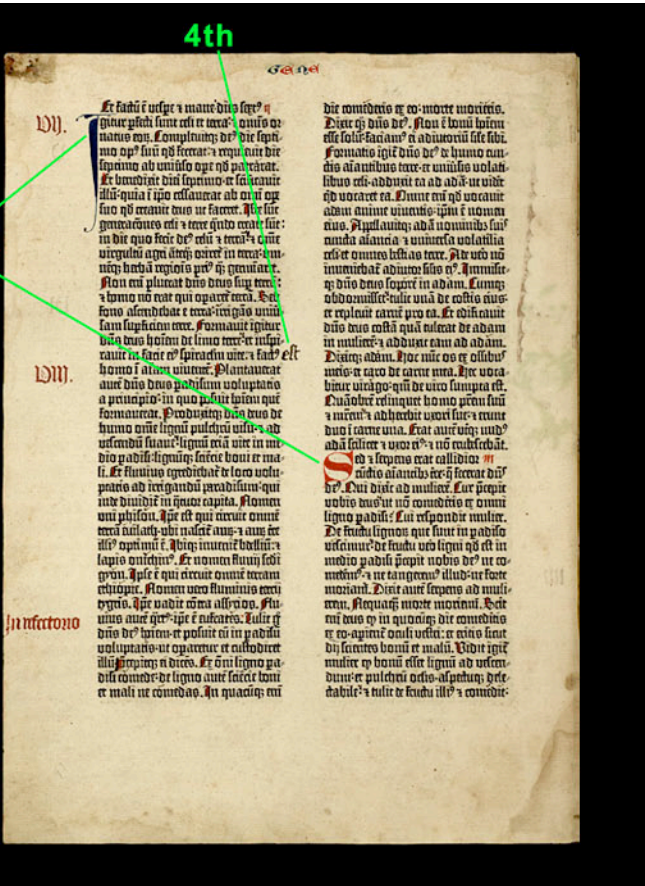 4th
GENE
Et factū ē vespe ⁊ mane dies sextꝰ
VII.
Igitur pfecti sunt celi et terra ⁊ omīs or-
natus eoꝝ. Complevitqꝫ deꝰ die septi-
mo opꝰ suū qd fecerat: ⁊ requievit die
septimo ab universo ope qd patrarat.
Et benedixit diei septimo: et sctificavit
illū: quia ī ipō cessaverat ab omī ope
suo qd creavit deus ut faceret. Iste sūt
generacōnes celi ⁊ terre
in die quo fecit deꝰ celū ⁊ terrā: ⁊ omē
virgultū agri
Non em̄ pluerat dn̄s deus sup terrā:
⁊ homo nō erat qui
fons ascendebat e terra: irrigās
sam supficiem terre. Formavit igitur
dn̄s deus hoīem de limo terre: et inspi-
ravit in faciē eiꝰ spiraclm vite: ⁊ factꝰ est
VIII.
homo ī aīam vivētem. Plantaverat
autē dn̄s deus padisum voluptatis
a principio: in quo posuit hoīem quē
formaverat. Produxitqꝫ dn̄s deus de
humo omē lignum pulchrū visu: ⁊ ad
vescendū suave: lignū eciā vite in me-
dio padisi: lignūqꝫ sciēcie boni et ma-
li. Et fluvius egrediebat de loco volu-
ptatis ad irrigandū paradisum: qui
inde dividit in capita. Nomen
uni phison. Ipē est qui circuit omnē
terrā ubi nascit auꝝ: ⁊ auꝝ
illiꝰ optimū ē. Ibiqꝫ invenit
lapis onichinꝰ. Et nomen fluvij scdi
gyon. Ipse ē qui circuit omnē terram
ethiopie. Nomen vero fluminis tercij
In refectorio
tygris. Ipē vadit cōtra assyrios. Flu-
vius autē ipē ē eufrates. Tulit
dn̄s deꝰ hoīem: et posuit eū in padisu
voluptatis: ut operaret et custodiret
illū. dicēs. Ex omī ligno pa-
disi comede: de ligno autē sciēcie boni
et mali ne comedas. In quacūqꝫ em̄
die comederis ex eo: morte morieris.
Dixit qꝫ dn̄s deꝰ. Non ē bonū hoīem
esse solū: faciamꝰ ei adiutoriū sile sibi.
Formatis igit dn̄s deꝰ de humo cun-
ctis aīantibus terre: et universis volati-
libus celi: adduxit ea ad adā: ut videret
qd vocaret ea. Omne em̄ qd vocavit
adam anime viventis: ipm ē nomen
eius. Appellavitqꝫ adā nominibꝰ suis
cuncta aīancia: ⁊ universa volatilia
celi: et omnes bestias terre. Ade vero nō
inveniebat adiutor silis eiꝰ. Immisit
qꝫ dn̄s deus soporē in adam. Cumqꝫ
obdormisset: tulit unā de costis eius:
et replevit carnē pro ea. Et edificavit
dn̄s deus costā quā tulerat de adam
in mulierē: ⁊ adduxit eam ad adam.
Dixitqꝫ adam. Hoc nūc os ex ossibus
meis: et caro de carne mea. Hec voca-
bitur virago: qm̄ de viro sumpta est.
Quāobrē relinquet homo prēm suū
⁊ mrēm: ⁊ adherebit uxori sue: ⁊ erunt
duo ī carne una. Erat autē nudꝰ
adā scilicet ⁊ uxor eiꝰ: ⁊ nō erubescebāt.
Sed ⁊ serpens erat callidior
cūctis aīantibꝫ terre: q̄ fecerat dn̄s
deꝰ. Qui dixit ad mulierē. Cur precepit
vobis deus ut nō comederetis ex omni
ligno padisi? Cui respondit mulier.
De fructu lignoꝝ que sunt in padiso
vescimur: de fructu vero ligni qd est in
medio padisi precepit nobis deꝰ ne co-
mederemꝰ: ⁊ ne tangeremꝰ illud: ne forte
moriamur. Dixit autē serpens ad muli-
erem. Nequaqꝫ morte moriemini. Scit
em̄ deus qꝫ in quocūqꝫ die comederitis
ex eo: apirent oculi vestri: et eritis sicut
dij scientes bonū et malū. Vidit igit
mulier qꝫ bonū esset lignū ad vescen-
dum: et pulchrū oclis: aspectuqꝫ dele-
ctabile: ⁊ tulit de fructu illiꝰ ⁊ comedit: